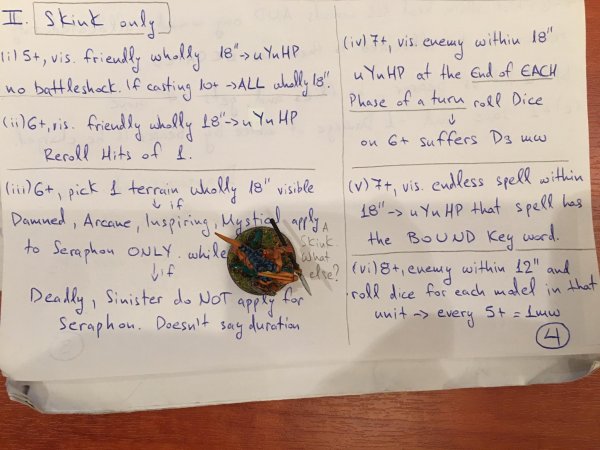 II. Skink only
(i) 5+, vis. friendly wholly 18" → uYnHP
no battleshock. If casting 10+ → ALL wholly 18".
(ii) 6+, vis. friendly wholly 18" → uYnHP
Reroll Hits of 1.
(iii) 6+, pick 1 terrain wholly 18" visible
↓ if
Damned, Arcane, Inspiring, Mystical apply
to Seraphon ONLY. while
↓ if
Deadly, Sinister do NOT apply for
Seraphon. Doesn't say duration
A
Skink.
What
else?
(iv) 7+, vis. enemy within 18"
uYnHP at the End of EACH
Phase of a turn roll Dice
↓
on 6+ suffers D3 mw
(v) 7+, vis. endless spell within
18" → uYnHP that spell has
the BOUND Key word.
(vi) 8+, enemy within 12" and
roll dice for each model in that
unit → every 5+ = 1mw
4